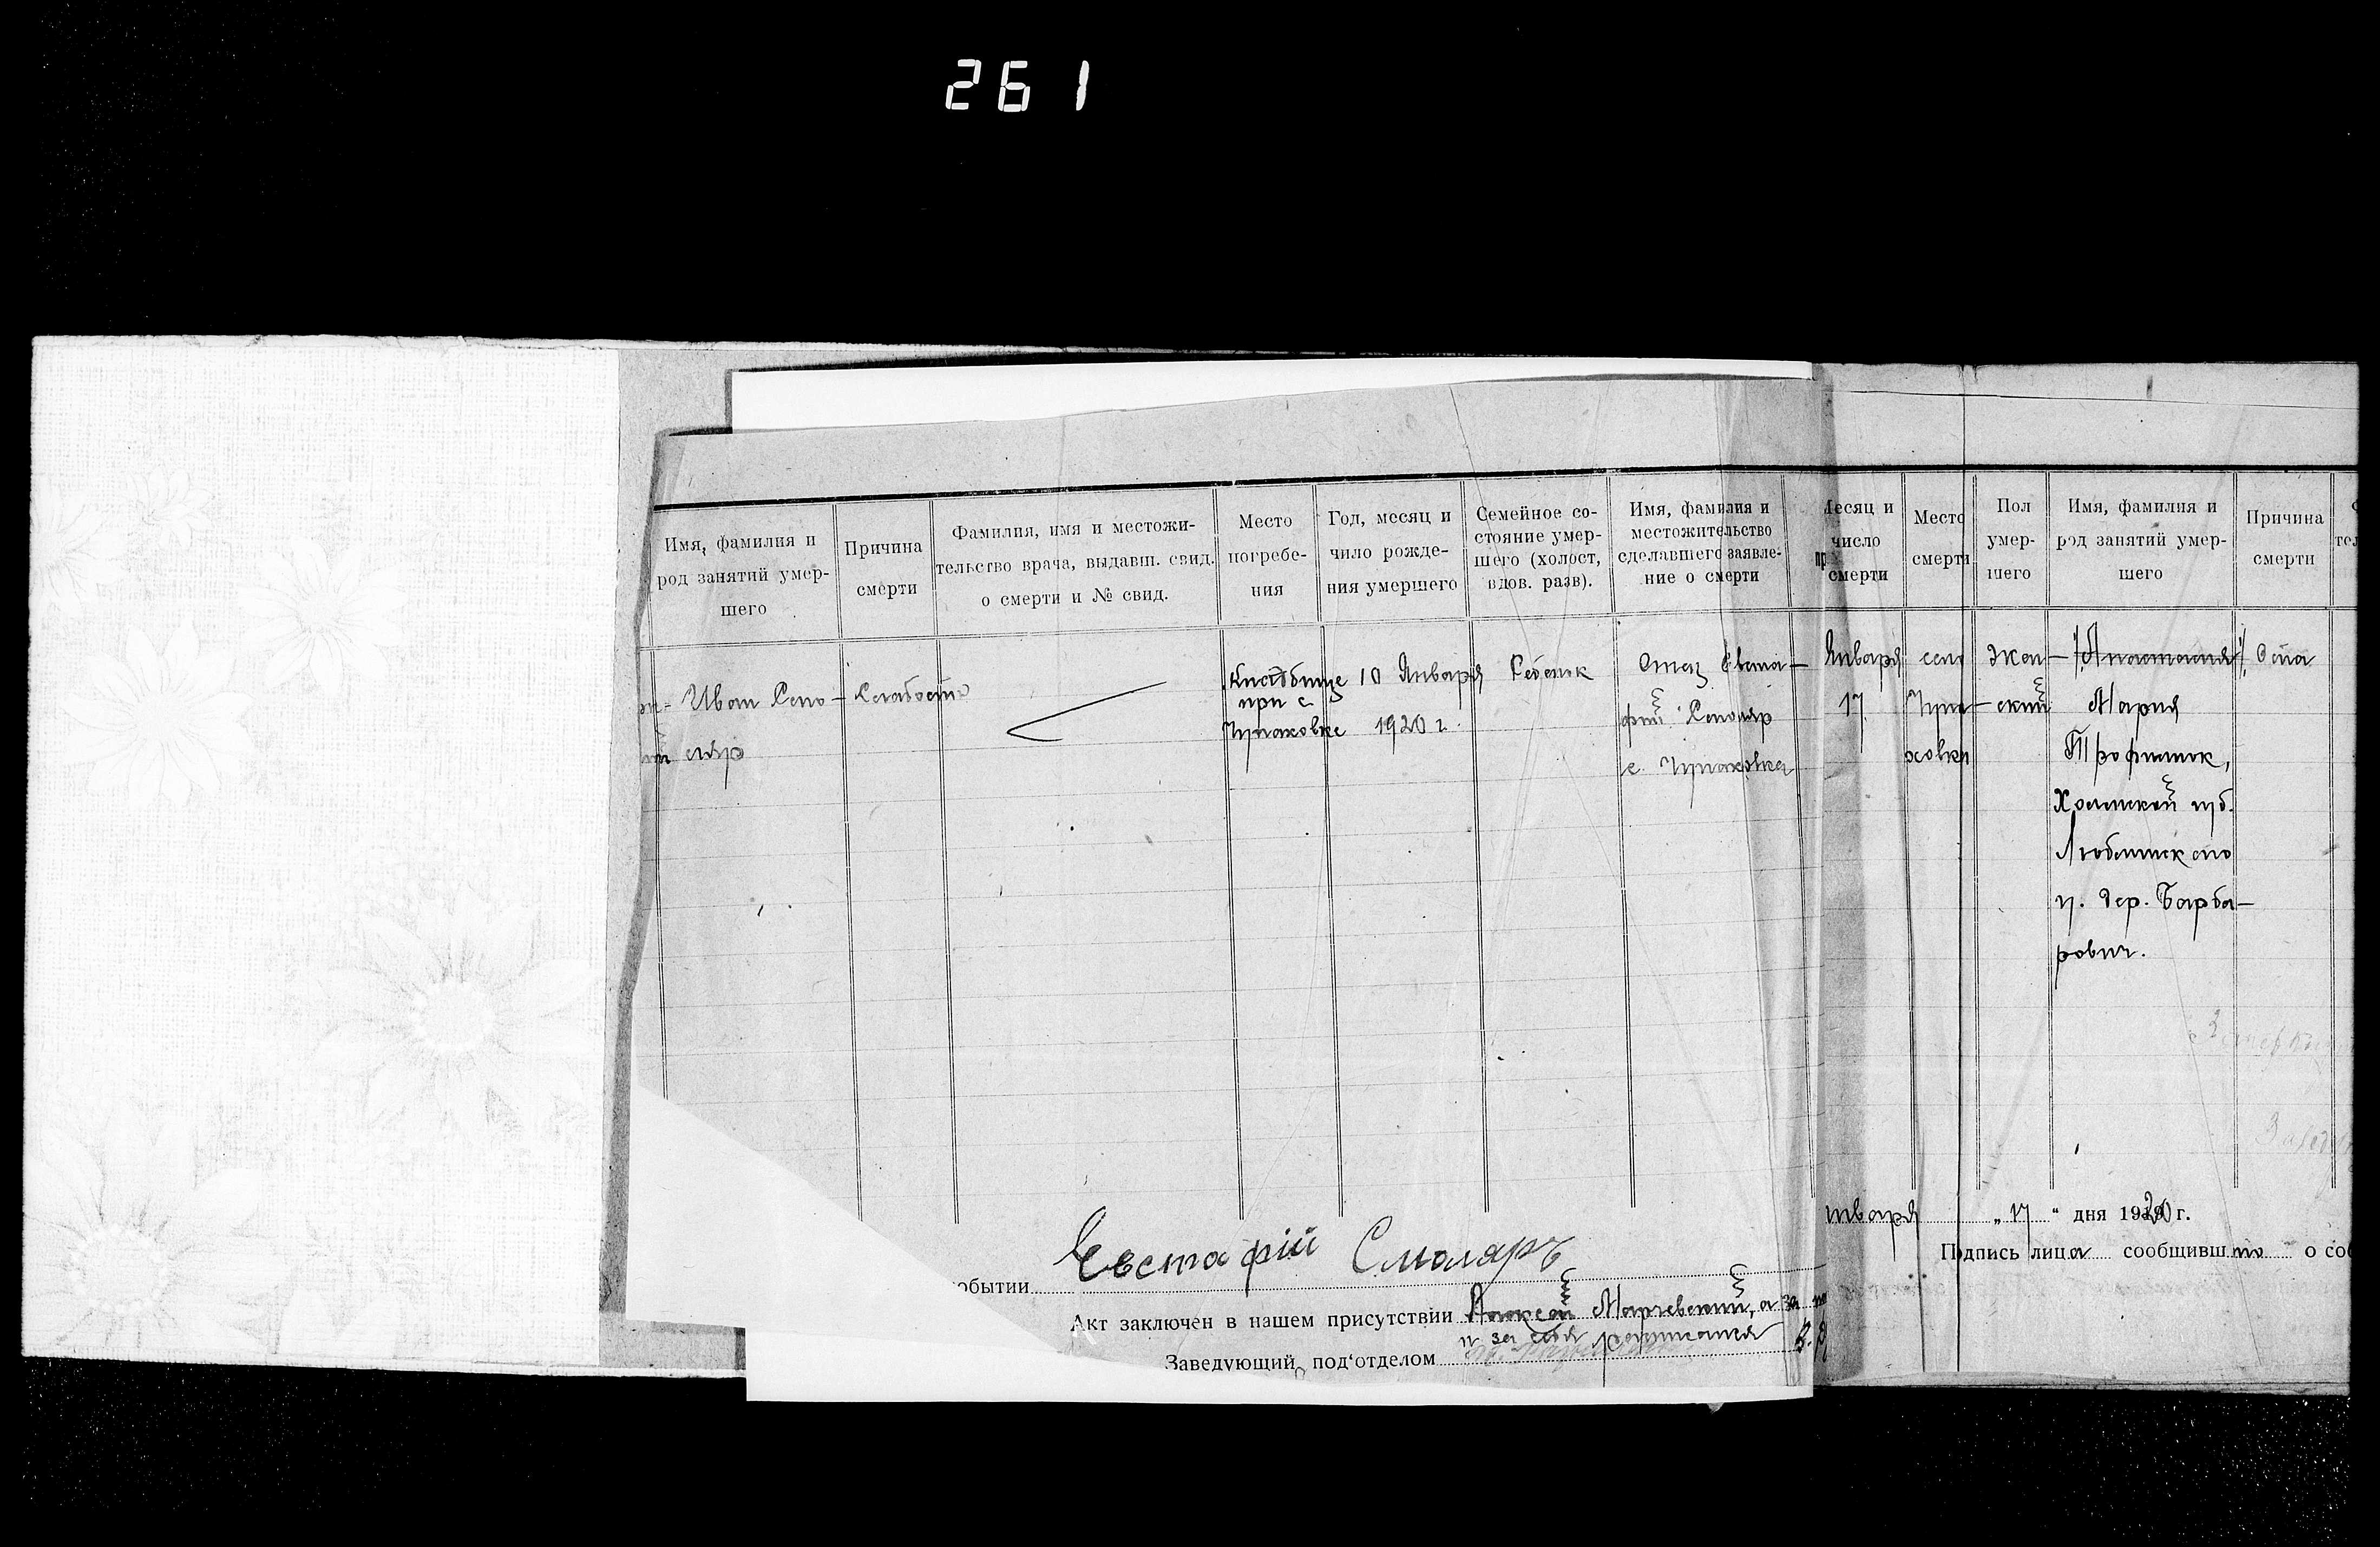 261
Имя, фамилия и
род занятий умер-
шего
Причина
смерти
Фамилия, имя и местожи-
тельство врача, выдавш. свид.
о смерти и № свид.
Место
погребе-
ния
Год, месяц и
чило рожде-
ния умершего
Семейное со-
стояние умер-
шего (холост,
вдов. разв).
Имя, фамилия и
местожительство
сделавшего заявле-
ние о смерти
Иван
Слабость
Кладбище
при с
Чупаховке
10 Января
1920 г.
Ребенок
Отец Евста-
фий Столяр
с. Чупаховка
событии Евстафій Смоляръ
Акт заключен в нашем присутствии Алексей
и за себя расписался
Заведующий под‘отделом
Месяц и
число
смерти
Место
смерти
Пол
умер-
шего
Имя, фамилия и
род занятий умер-
шего
Причина
смерти
Января
17
село
Чупа-
ховка
жен-
ский
Анастасия
Мария
Трофимюк,
Холмской губ.
Люблинского
у. дер. Барба-
рович.
Оспа
января „17“ дня 1920 г.
Подпись лица сообщивш.